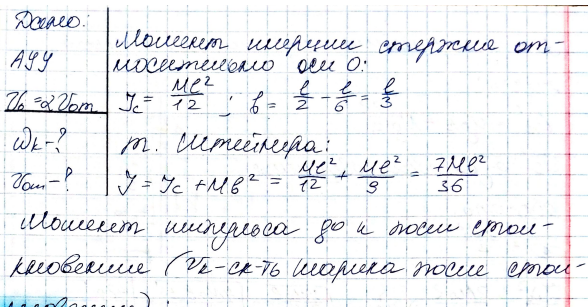 Дано:
АУУ
V₀ = 2V₀m
ωk - ?
V₀m - ?
Момент инерции стержня от-
носительно оси O:
Jc = Ml²/12 ; b = l/2 - l/6 = l/3
т. Штейнера:
J = Jc + Mb² = Ml²/12 + Ml²/9 = 7Ml²/36
Момент импульса до и после стол-
кновения (Vk - ск-ть шарика после стол-